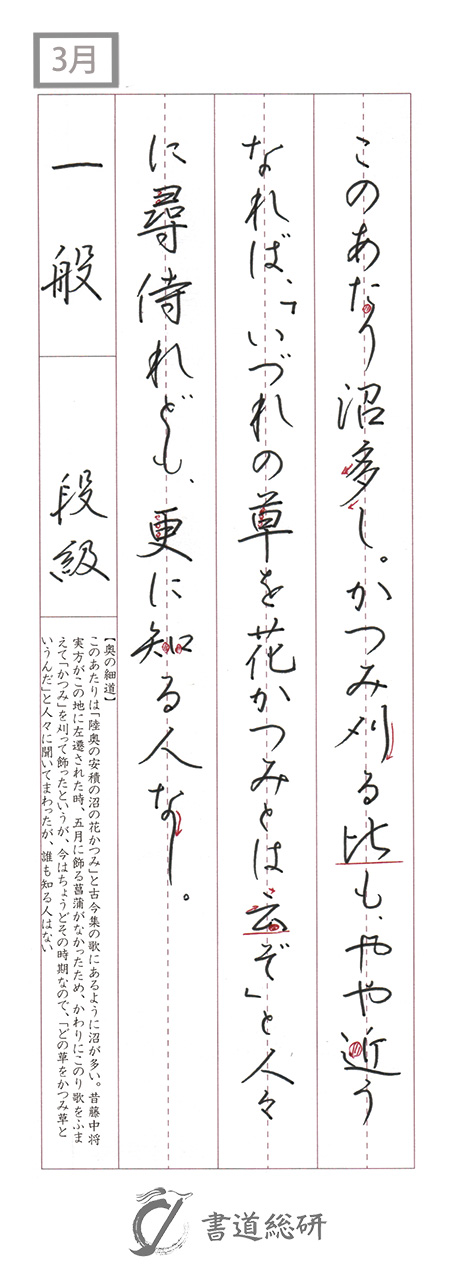 3月
このあたり沼多し。かつみ刈る比も、やや近う
なれば、「いづれの草を花かつみとは云ぞ」と人々
に尋侍れども、更に知る人なし。
一般
段級
【奥の細道】
このあたりは「陸奥の安積の沼の花かつみ」と古今集の歌にあるように沼が多い。昔藤中将
実方がこの地に左遷された時、五月に飾る菖蒲がなかったため、かわりにこのり歌をふま
えて「かつみ」を刈って飾ったというが、今はちょうどその時期なので、「どの草をかつみ草と
いうんだ」と人々に聞いてまわったが、誰も知る人はない
書道総研